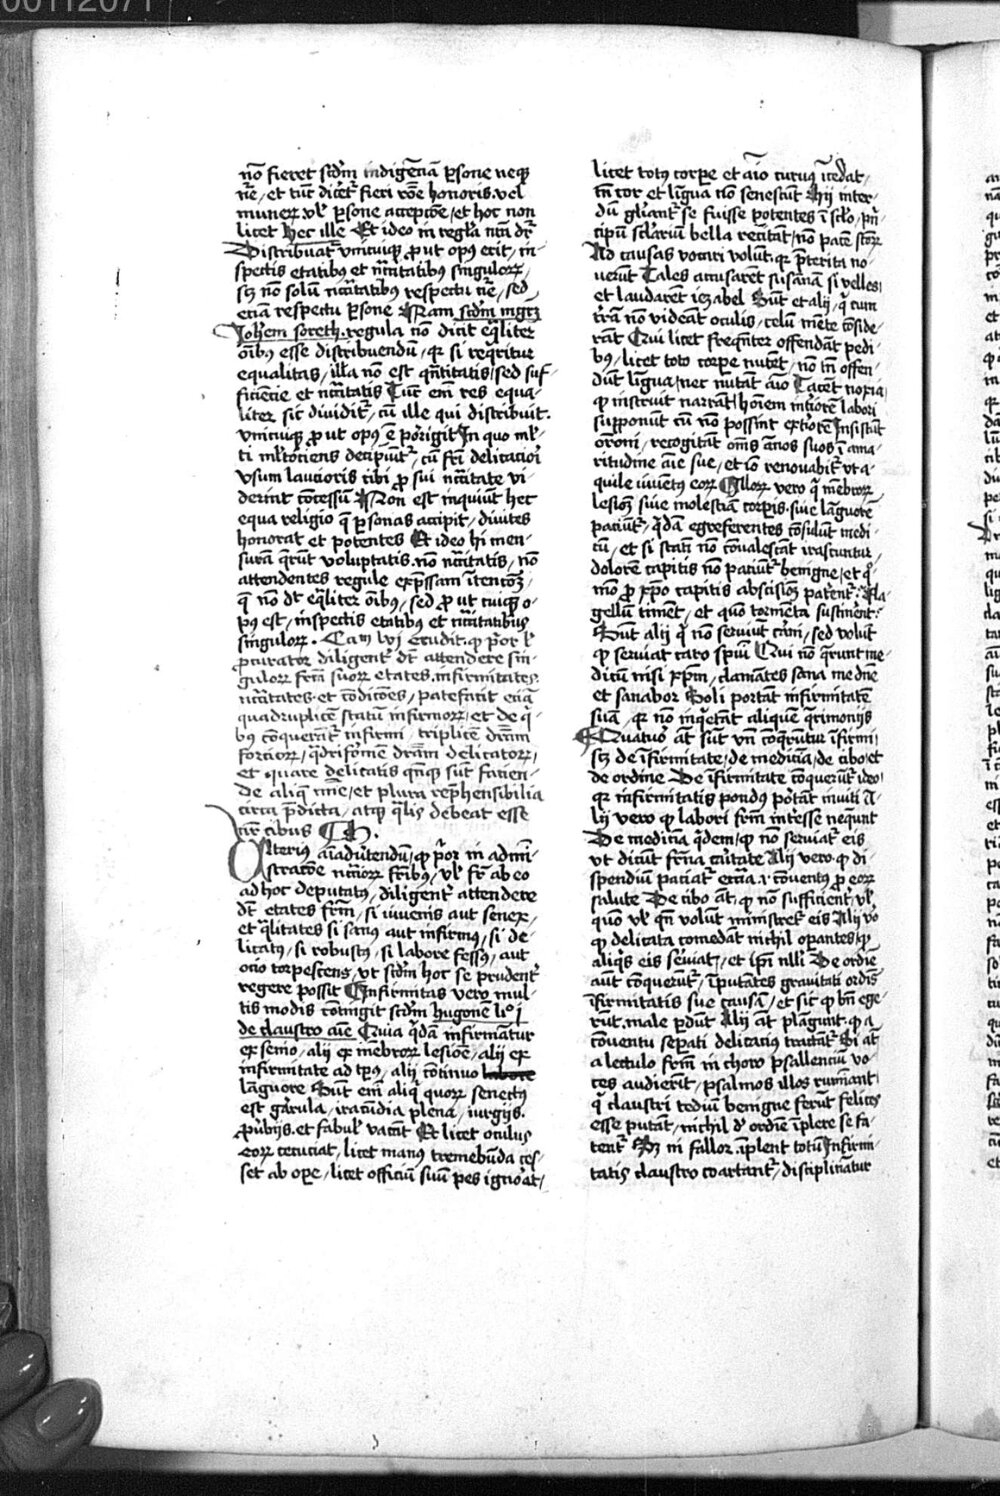 00112071
nō fieret scďm indigēciā ꝑsone neqꝫ
nr̄e, et tūc dicēt᷑ fieri rōe honoris vel
munerꝫ vl̓ ꝑsone accepcōe, et hoc non
licet hec ille Et ideo in regl̓a nr̄a dr̄
Distribuat᷑ vnicuiqꝫ ꝓut opꝰ erit, in-
spectis etatibꝰ et nc̄itatibꝰ singulorꝫ
sꝫ nō solū nc̄itatibꝰ respectu nr̄e, sed
eciā respectu ꝑsone Nam scďm mgr̄ꝫ
Joh̄em soreth. regula nō dicit eq̄liter
oībꝰ esse distribuendū, qꝛ si reqͥritur
equalitas, illa nō est qn̄titatis, sed suf-
ficiēcie et nc̄itatis Tūc em̄ res equa-
liter sic dividit᷑, cū ille qui distribuit.
vnicuiqꝫ ꝓut opꝰ ē porrigit In quo ml̓-
ti ml̓tociens decipiunt᷑, cū fr̄i delicaciori
vsum laucioris cibi ꝓ sui nc̄itate vi-
derint cōcessū Non est inquiūt hec
equa religio q̄ ꝑsonas accipit, divites
honorat et potentes Et ideo hi men-
surā qͣrūt voluptatis. nō nc̄itatis, nō
attendentes regule exp̄ssam ītencōꝫ,
q̄ nō dt̄ eq̄liter oībꝰ, sed ꝓut cuiqꝫ o-
pꝰ est, inspectis etatibꝰ et nc̄itatibus
singulorꝫ. Cam lvj erudit. ꝙ p̓or vl̓
ꝓcurator diligent᷑ dt̄ attendere sin-
gulorꝫ fr̄m suorꝫ etates, infirmitates
nc̄itates. et cōdicōes, patefacit eciā
quadruplicē statū infirmorꝫ, et de qͥ-
bꝰ cōquerāt᷑ infirmi, triplicē dr̄am
forciorꝫ, qͣdriformē dr̄am delicatorꝫ,
et quare delicatis qn̄qꝫ sūt facien-
de aliq̄ mīe, et plura rep̄hensibilia
circa p̄dicta, atqꝫ qͣlis debeat esse
vir cibus Ca.
Ulteriꝰ aīadv̓tendū, ꝙ p̓or in admī-
stracōe nc̄iorꝫ fr̄ibꝰ, vl̓ fr̄ ab eo
ad hoc deputatꝰ, diligent᷑ attendere
dt̄ etates fr̄m, si iuvenis aut senex,
et qͣlitates si sanꝰ aut infirmꝰ, si de-
licatꝰ, si robustꝰ, si labore fessꝰ, aut
ocio torpescens, vt scďm hoc se prudent᷑
regere possit Infirmitas vero mul-
tis modis cōtingit scďm hugonē liº j
de claustro aīe Quia qͥdā infirmātur
ex senio, alij ex mēbrorꝫ lesiōe, alij ex
infirmitate ad tp̄ꝰ, alij cōtinuo labore
lāguore Sūt em̄ aliqͥ quorꝫ senectꝰ
est gārula, iracūdia plena, iurgijs.
ꝓv̓bijs. et fabul̓ vacāt Et licet oculus
eorꝫ cecuciat, licet manꝰ tremebūda ces-
set ab oꝑe, licet officiū suū pes ignorat,
licet totꝰ corpe et aīo curvꝰ īcedat,
tn̄ cor et līgua nō senescūt Hij inter-
dū gl̓iant᷑ se fuisse potentes ī scl̓o, pn̄-
cipū sclariū bella recitāt, nō pacē scorꝫ
Ad causas vocari volūt, qꝛ p̄terita no-
verūt Tales accusarēt susānā si vellēt
et laudarēt iezabel Sūt et alij, qͥ cum
tr̄ā nō videāt oculis, celū mēte cōside-
rāt Qui licet freqn̄ter offendāt pedi-
bꝰ, licet toto corꝑe nutēt, nō tn̄ offen-
dūt līgua, nec nutāt aīo Tacēt noxia,
ꝙ instruit narrāt, hoīem int̓iorē labori
supponūt cū nō possint ext̓iorē Insistūt
orōni, recogitāt oms̄ ānos suos ī ama-
ritudine aīe sue, et iō renovabit᷑ vt a-
quile iuvētꝰ eorꝫ Illorꝫ vero qͥ mēbrorꝫ
lesiōꝫ sive molestiā corꝑis. sive lāguorē
paciūt᷑, qͥdā egre ferentes cōsulūt medi-
cū, et si statī nō cōvalescāt irascuntur,
dolorē capitis nō paciūt᷑ benigne, et qͦ-
mō ꝓ xp̄o capitis abscisiōꝫ paterēt᷑. Fla-
gellum timēt, et quō tormēta sustinerēt.
Sūt alij qͥ nō serviūt carni, sed volūt
ꝙ serviat caro spūi Qui nō qͣrunt me-
dicū nisi xp̄m, clamātes sana me dn̄e
et sanabor Soli portāt infirmitatē
suā, qꝛ nō inqͥetāt aliquē qͣrimonijs
Quatuor āt sūt vn̄ cōqͣrūtur īfirmi,
sꝫ de īfirmitate, de medicīa, de cibo, et
de ordine De īfirmitate cōquerūt᷑ ideo,
qꝛ infirmitatis pondꝰ portāt inviti A-
lij vero ꝙ labori fr̄m interesse neqͣunt
De medicīa qͥdem, ꝙ nō serviat᷑ eis
vt dicūt fr̄na caritate Alij vero. ꝙ di-
spendiū paciat᷑ eccīa. et cōventꝰ ꝓ eorꝫ
salute De cibo āt, ꝙ nō sufficient᷑, vl̓
quō vl̓ qn̄ volūt ministret᷑ eis Alij vo
ꝙ delicata comedāt nichil oꝑantes, ꝙ
aliqͥs eis serviat, et ip̄i nulli De ordīe
aūt cōquerūt᷑, īputātes gravitati ordīs
īfirmitatis sue causā, et sic ꝙ bn̄ ege-
rūt. male ꝑdūt Alij āt plāgunt. ꝙ a
cōventu seꝑati delicaciꝰ tractāt᷑ Si āt
a lectulo fr̄m in choro psallenciū vo-
ces audierīt, psalmos illos rumināt
qͥ claustri tediū benigne ferūt felices
esse putāt, nichil d̓ ordīe īplere se fa-
tent᷑ Sꝫ ni fallor. īplent totū Infirmi-
tatis claustro coartant᷑, disciplinātur